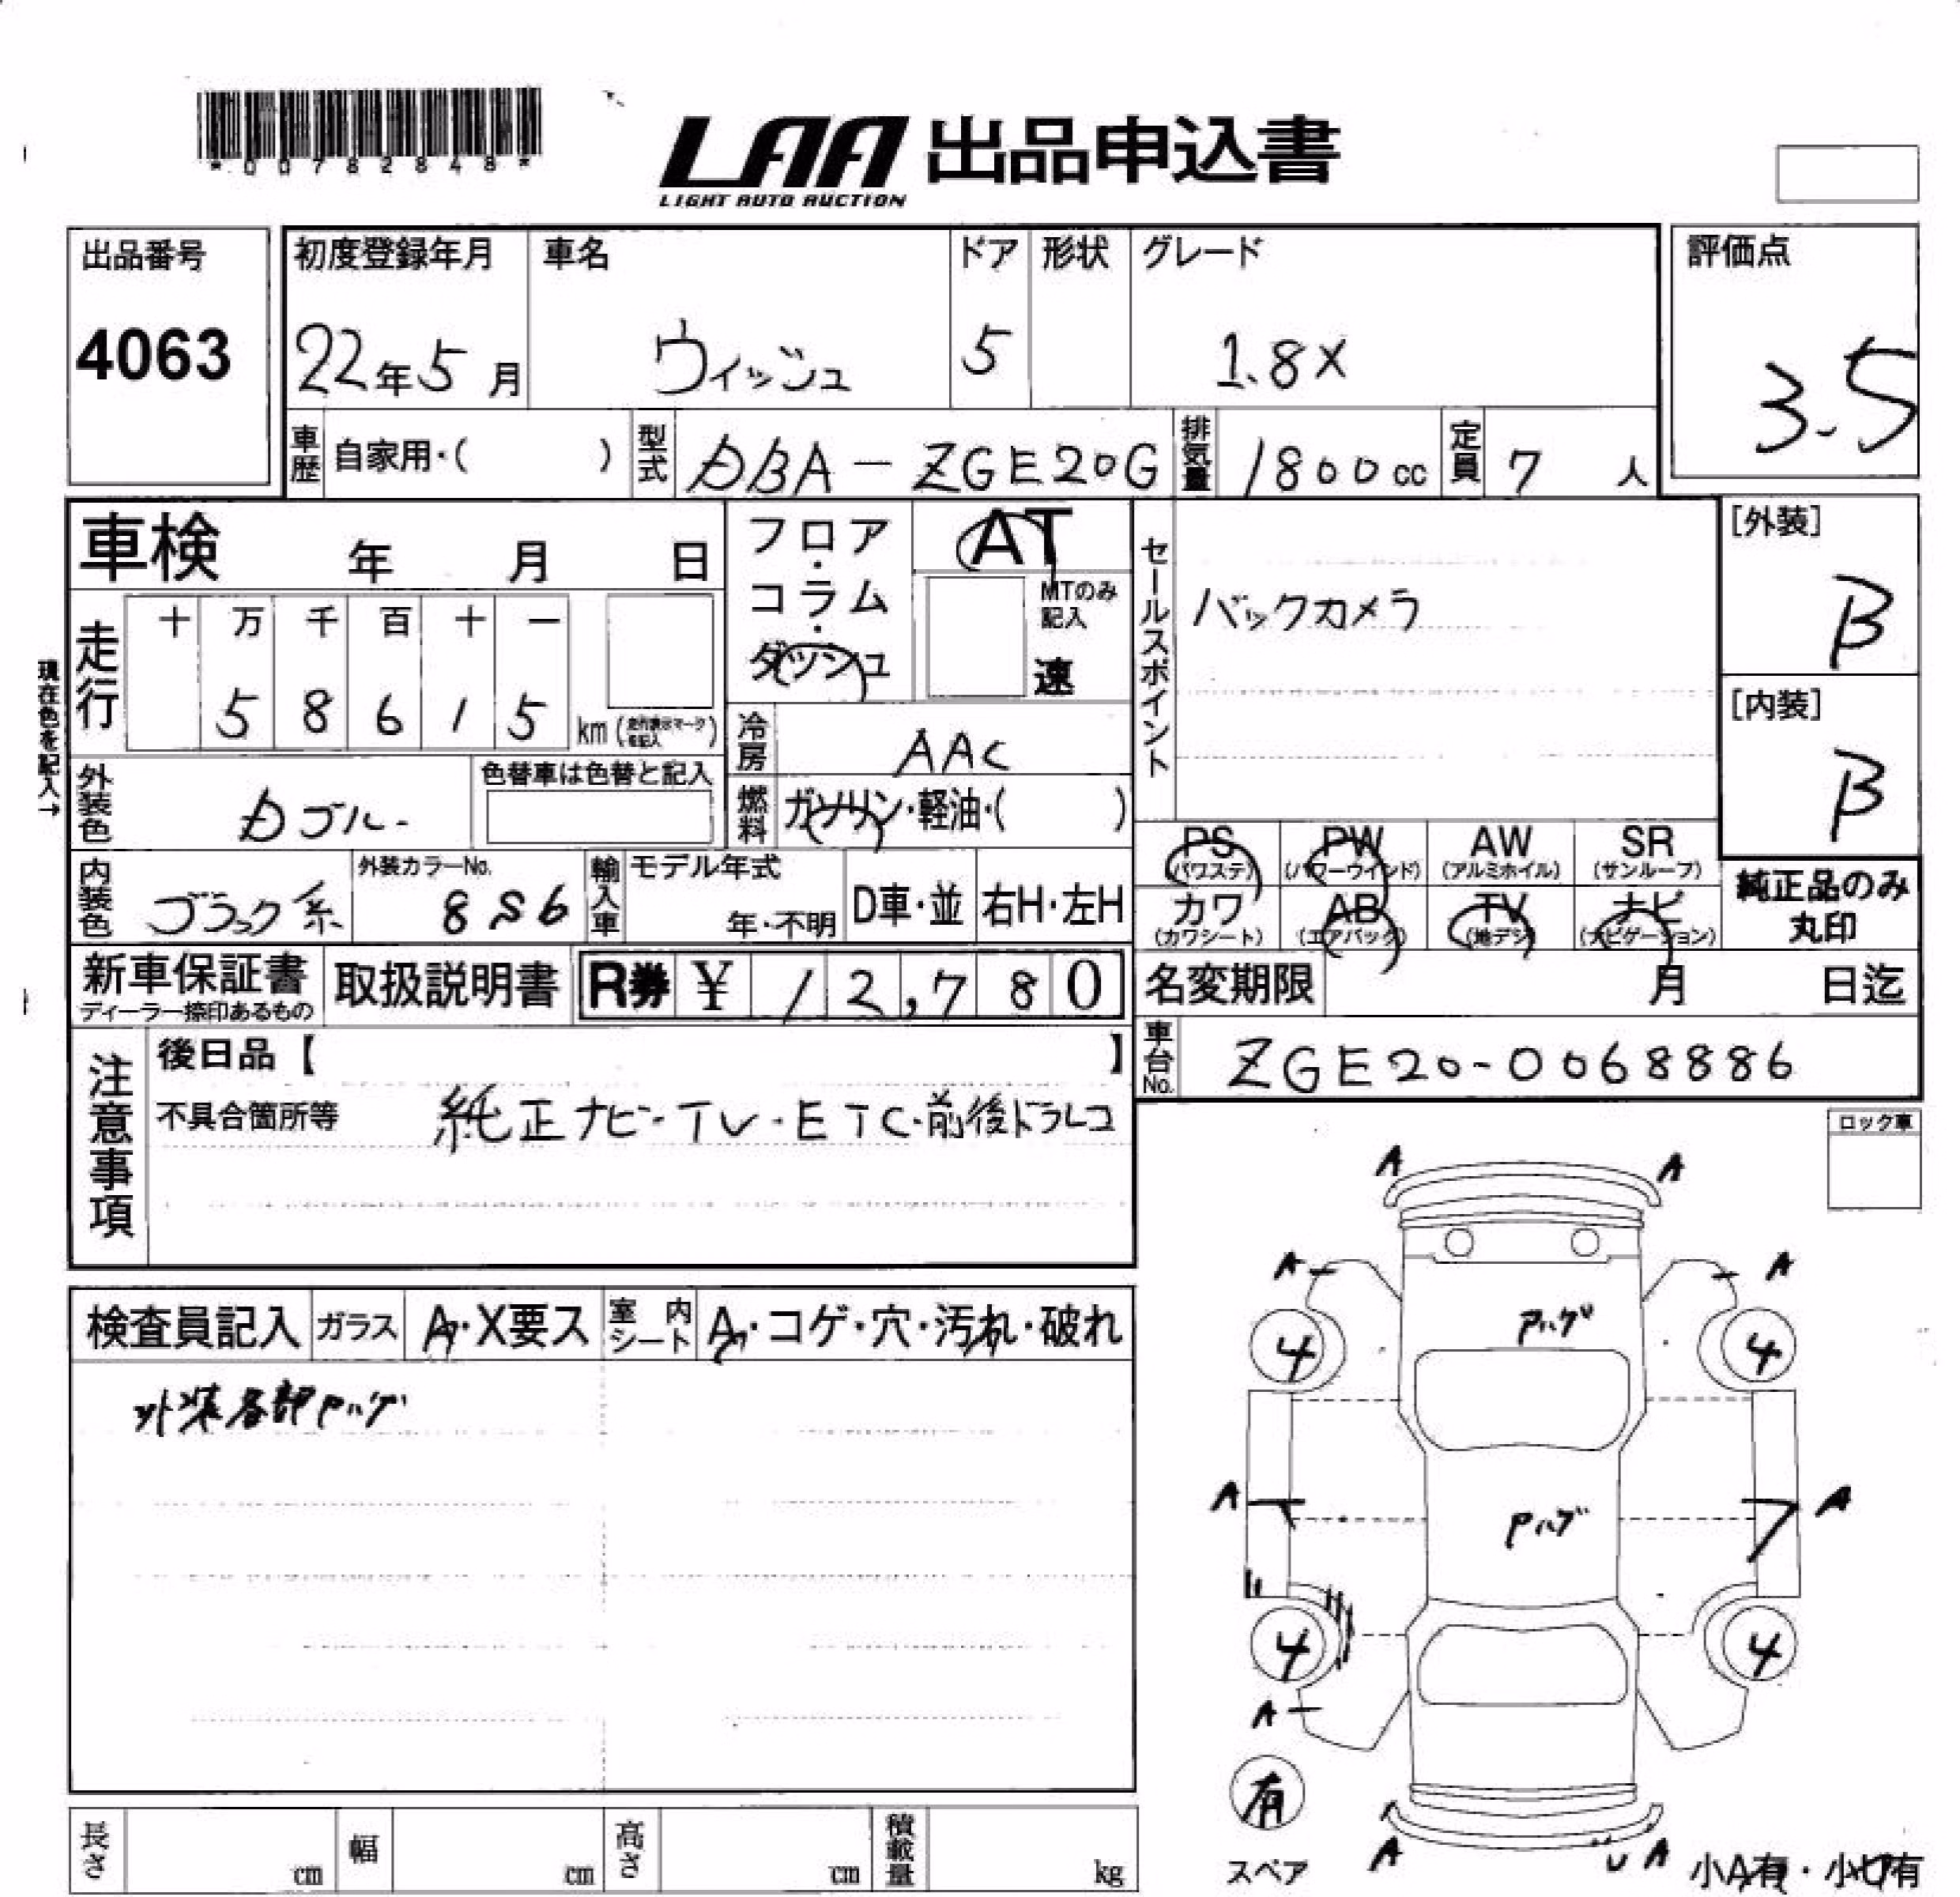 *00782848*
LAA 出品申込書
LIGHT AUTO AUCTION
出品番号
4063
初度登録年月
22年5月
車名
ウィッシュ
ドア
5
形状
グレード
1.8X
評価点
3.5
車歴
自家用・( )
型式
DBA-ZGE20G
排気量
1800cc
定員
7人
車検 年 月 日
フロア・コラム・ダッシュ
AT
MTのみ記入
速
セールスポイント
バックカメラ
[外装]
B
[内装]
B
現在色を記入→
走行
十 万 千 百 十 一
5 8 6 1 5 km
冷房
AAC
燃料
ガソリン・軽油・( )
外装色
ブルー
色替車は色替と記入
内装色
ブラック系
外装カラーNo.
8S6
輸入車
モデル年式
年・不明
D車・並
右H・左H
PS
(パワステ)
PW
(パワーウインド)
AW
(アルミホイル)
SR
(サンルーフ)
カワ
(カワシート)
AB
(エアバック)
TV
(地デジ)
ナビ
(ナビゲーション)
純正品のみ
丸印
新車保証書
ディーラー捺印あるもの
取扱説明書
R券 ¥ 12,780
名変期限 月 日迄
車台No.
ZGE20-0068886
注意事項
後日品【 】
不具合箇所等 純正ナビ・TV・ETC・前後ドラレコ
ロック車
検査員記入
ガラス
A・X要ス
室内シート
A・コゲ・穴・汚れ・破れ
外装各部ハゲ
A A
A A
4 4
A A
4 4
A
有
スペア
A
U A
小A有・小U有
長さ cm
幅 cm
高さ cm
積載量 kg